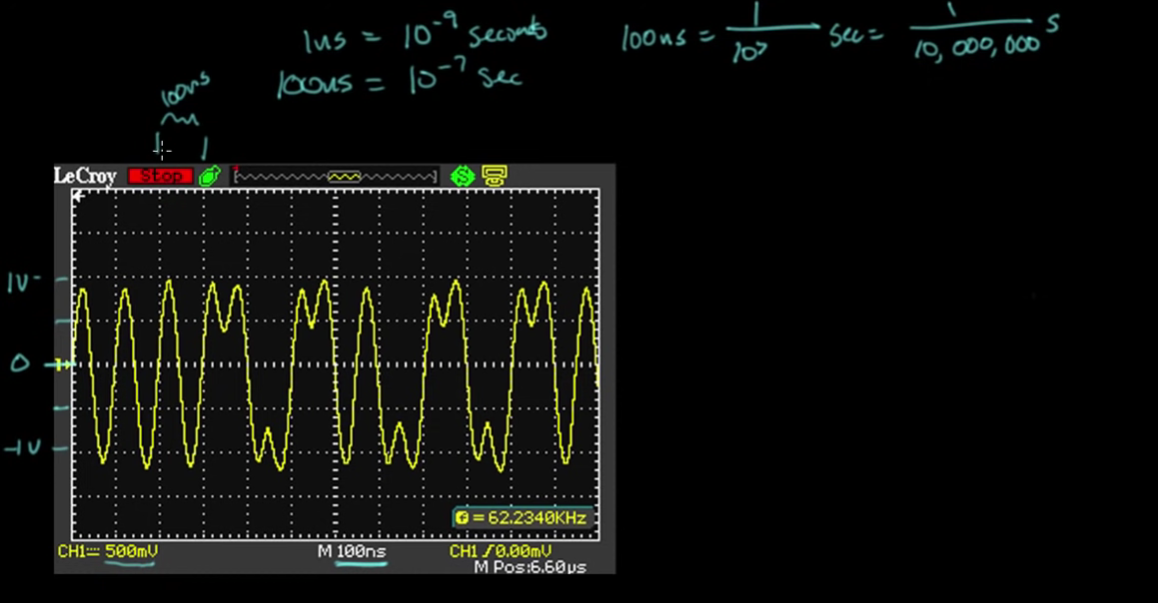 1ns = 10⁻⁹ seconds
100ns = 10⁻⁷ sec
100ns = 1/10⁷ sec = 1/10,000,000 s
100ns
LeCroy Stop
1V
0
-1V
f = 62.2340KHz
CH1 500mV M 100ns CH1 /0.00mV
M Pos:6.60µs